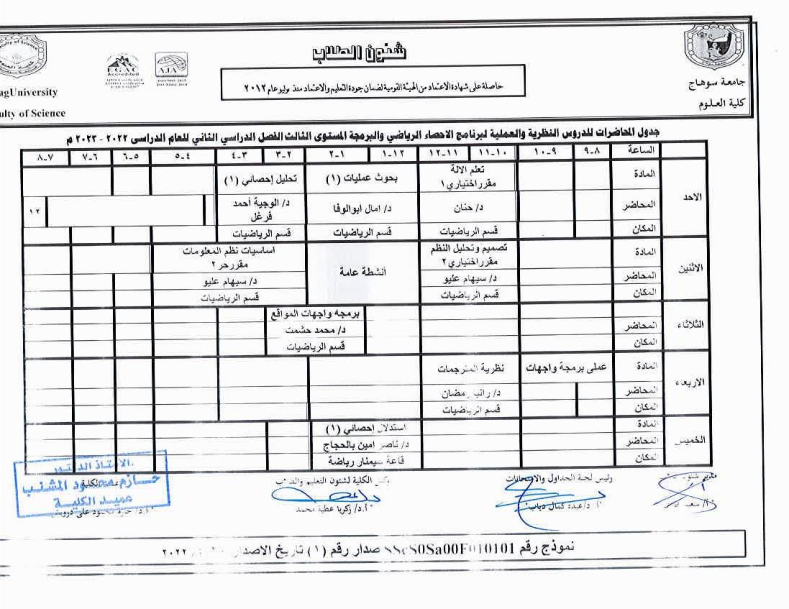 شئون الطلاب
حاصلة على شهادة الاعتماد من الهيئة القومية لضمان جودة التعليم والاعتماد منذ يوليو عام ٢٠١٢
جامعة سوهاج
كلية العلوم
EGAC
Accredited
agUniversity
ulty of Science
جدول المحاضرات للدروس النظرية والعملية لبرنامج الاحصاء الرياضي والبرمجة المستوى الثالث الفصل الدراسي الثاني للعام الدراسى ٢٠٢٢ - ٢٠٢٣ م
الساعة ٨-٩ ٩-١٠ ١٠-١١ ١١-١٢ ١٢-١ ١-٢ ٢-٣ ٣-٤ ٤-٥ ٥-٦ ٦-٧ ٧-٨
الاحد
المادة تعلم الالة بحوث عمليات (١) تحليل إحصائي (١)
مقرر اختياري ١
المحاضر د/ حنان د/ امال ابوالوفا د/ الوجية أحمد ١٢
فرغل
المكان قسم الرياضيات قسم الرياضيات قسم الرياضيات
الاثنين
المادة تصميم وتحليل النظم أنشطة عامة اساسيات نظم المعلومات
مقرر اختياري ٢ مقرر حر ٢
المحاضر د/ سيهام عليو د/ سيهام عليو
المكان قسم الرياضيات قسم الرياضيات
الثلاثاء
المادة برمجه واجهات المواقع
المحاضر د/ محمد حشمت
المكان قسم الرياضيات
الاربعاء
المادة عملى برمجة واجهات نظرية المترجمات
المحاضر د/ رانيا رمضان
المكان قسم الرياضيات
الخميس
المادة استدلال إحصائي (١)
المحاضر د/ ناصر امين بالحجاج
المكان قاعة سيمنار رياضة
رئيس لجنة الجداول والامتحانات
وكيل الكلية لشئون التعليم والطلاب
الكلية
أ.د/ عبدة كمال دياب
أ.د/ زكريا عطية محمد
الاستاذ الدكتور
حازم محمود المشنب
عميد الكلية
نموذج رقم SScS0Sa00F010101 صدار رقم (١) تاريخ الاصدار ٢٠٢٢